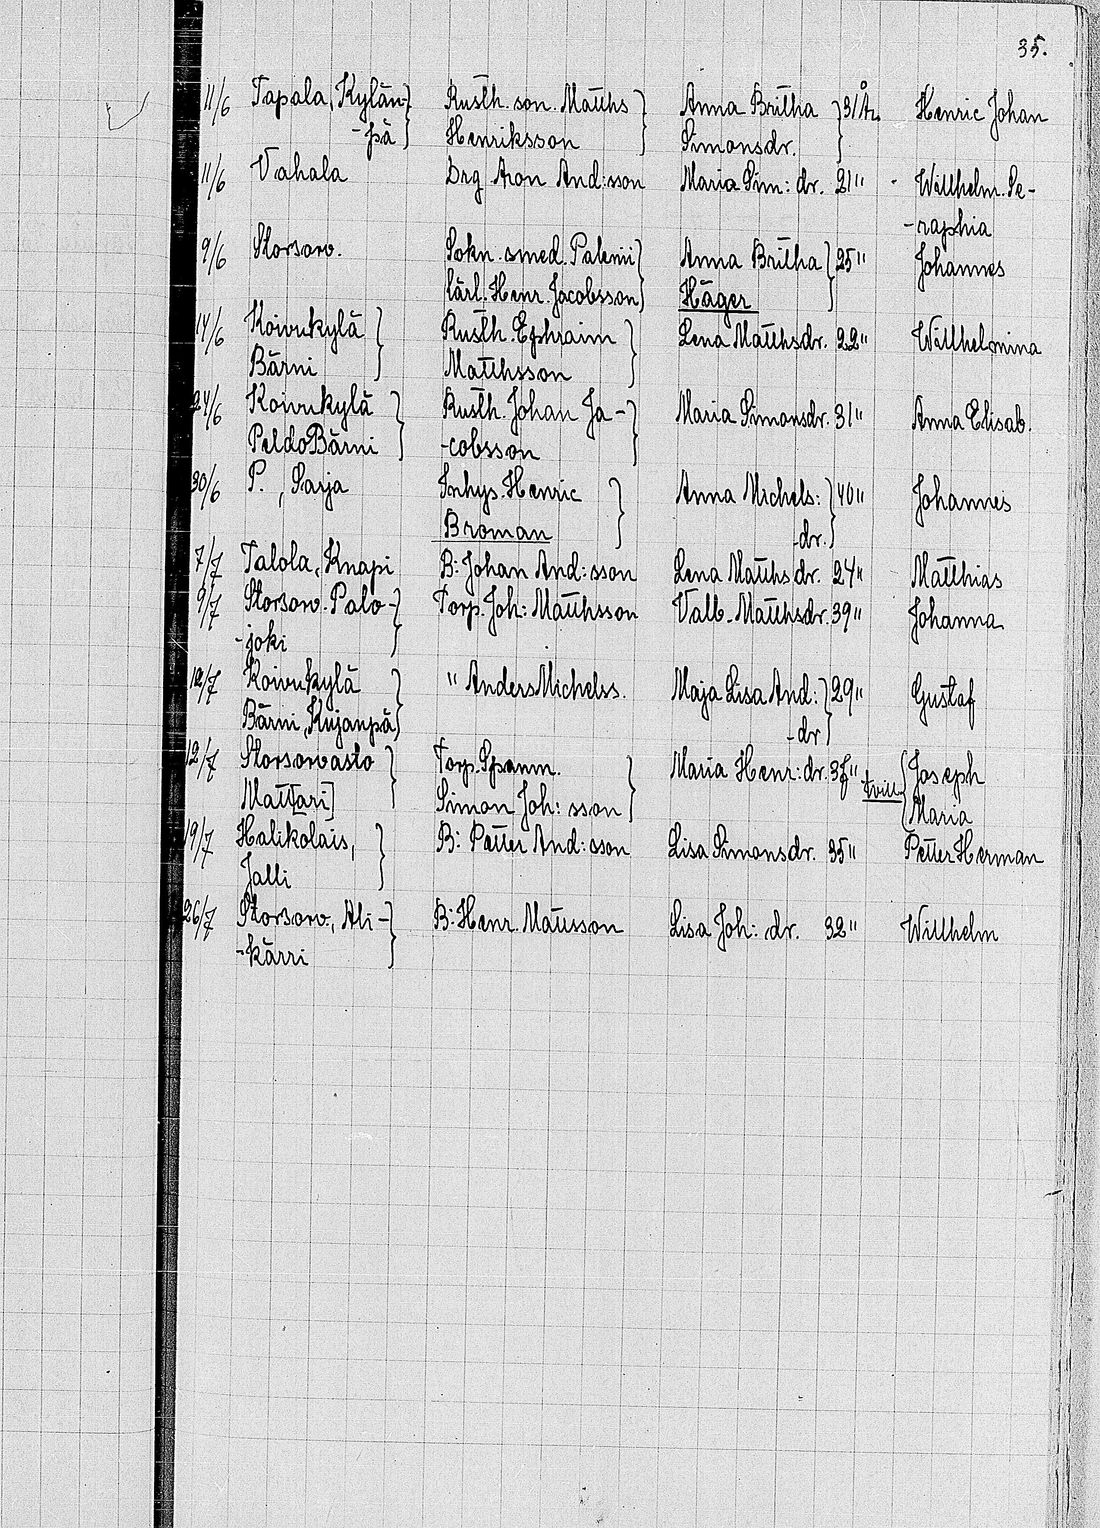 35.
11/6 Tapala, Kylän- Rusth. son. Matths Anna Britha 31 År Henric Johan
-pä Henriksson Simonsdr.
11/6 Vahala Drg Aron And:sson Maria Sim: dr. 21 " - Willhelm. Se-
-raphia
9/6 Storsorv. Sokn. smed. Palenii Anna Britha 25 " Johannes
lärl. Henr. Jacobsson Häger
14/6 Koivukylä Rusth. Ephraim Lena Matthsdr. 22 " Willhelmina
Bärni Matthsson
24/6 Koivukylä Rusth. Johan Ja- Maria Simonsdr. 31 " Anna Elisab.
PeldoBärni -cobsson
30/6 P. , Sarja Inhys. Henric Anna Michels: 40 " Johannes
Broman -dr.
7/7 Talola, Knapi B: Johan And:sson Lena Matths dr. 24 " Matthias
9/7 Storsorv. Palo- Torp. Joh: Matthsson Valb. Matthsdr. 39 " Johanna
-joki
12/7 Koivukylä " Anders Michelss. Maja Lisa And: 29 " Gustaf
Bärni, Kujanpä -dr
12/7 Storsorvasto Torp. Spanm. Maria Henr: dr. 37 " tvill Joseph
Matt[ari] Simon Joh: sson Maria
19/7 Halikolais, B: Petter And:sson Lisa Simonsdr. 35 " Petter Herman
Jalli
26/7 Storsorv., Ali- B: Henr. Matsson Lisa Joh: dr. 32 " Willhelm
-kärri